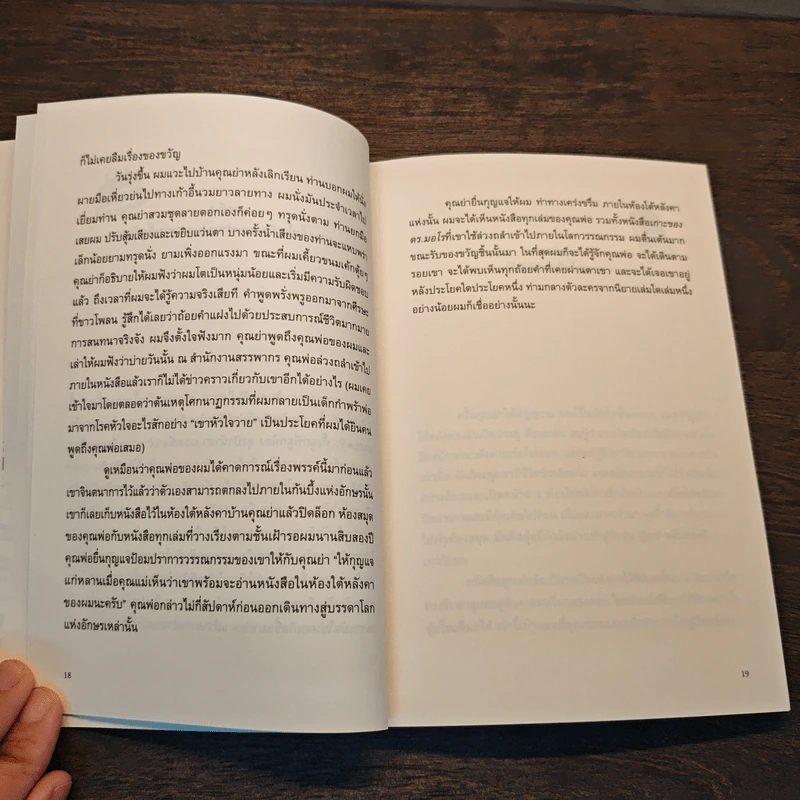 ก็ไม่เคยลืมเรื่องของขวัญ
วันรุ่งขึ้น ผมแวะไปบ้านคุณย่าหลังเลิกเรียน ท่านบอกผมให้นั่ง
ผายมือเหี่ยวย่นไปทางเก้าอี้นวมยาวลายทาง ผมนั่งมันประจำเวลาไป
เยี่ยมท่าน คุณย่าสวมชุดลายดอกเองก็ค่อยๆ ทรุดนั่งตาม ท่านยกมือ
เสยผม ปรับสุ้มเสียงและเขยิบแว่นตา บางครั้งน้ำเสียงของท่านจะแหบพร่า
เล็กน้อยยามทรุดนั่ง ยามเพิ่งออกแรงมา ขณะที่ผมเคี้ยวขนมเค้กตุ้ยๆ
คุณย่าก็อธิบายให้ผมฟังว่าผมโตเป็นหนุ่มน้อยและเริ่มมีความรับผิดชอบ
แล้ว ถึงเวลาที่ผมจะได้รู้ความจริงเสียที คำพูดพรั่งพรูออกมาจากศีรษะ
ที่ขาวโพลน รู้สึกได้เลยว่าถ้อยคำแฝงไปด้วยประสบการณ์ชีวิตมากมาย
การสนทนาจริงจัง ผมจึงตั้งใจฟังมาก คุณย่าพูดถึงคุณพ่อของผมและ
เล่าให้ผมฟังว่าบ่ายวันนั้น ณ สำนักงานสรรพากร คุณพ่อล่วงถลำเข้าไป
ภายในหนังสือแล้วเราก็ไม่ได้ข่าวคราวเกี่ยวกับเขาอีกได้อย่างไร (ผมเคย
เข้าใจมาโดยตลอดว่าต้นเหตุโศกนาฏกรรมที่ผมกลายเป็นเด็กกำพร้าพ่อ
มาจากโรคหัวใจอะไรสักอย่าง “เขาหัวใจวาย” เป็นประโยคที่ผมได้ยินคน
พูดถึงคุณพ่อเสมอ)
ดูเหมือนว่าคุณพ่อของผมได้คาดการณ์เรื่องพรรค์นี้มาก่อนแล้ว
เขาจินตนาการไว้แล้วว่าตัวเองสามารถตกลงไปภายในก้นบึ้งแห่งอักษรนั้น
เขาก็เลยเก็บหนังสือไว้ในห้องใต้หลังคาบ้านคุณย่าแล้วปิดล็อก ห้องสมุด
ของคุณพ่อกับหนังสือทุกเล่มที่วางเรียงตามชั้นเฝ้ารอผมนานสิบสองปี
คุณพ่อยื่นกุญแจป้อมปราการวรรณกรรมของเขาให้กับคุณย่า “ให้กุญแจ
แก่หลานเมื่อคุณแม่เห็นว่าเขาพร้อมจะอ่านหนังสือในห้องใต้หลังคา
ของผมนะครับ” คุณพ่อกล่าวไม่กี่สัปดาห์ก่อนออกเดินทางสู่บรรดาโลก
แห่งอักษรเหล่านั้น
18
คุณย่ายื่นกุญแจให้ผม ท่าทางเคร่งขรึม ภายในห้องใต้หลังคา
แห่งนั้น ผมจะได้เห็นหนังสือทุกเล่มของคุณพ่อ รวมทั้งหนังสือเกาะของ
ดร.มอโรที่เขาใช้ล่วงถลำเข้าไปภายในโลกวรรณกรรม ผมตื่นเต้นมาก
ขณะรับของขวัญชิ้นนั้นมา ในที่สุดผมก็จะได้รู้จักคุณพ่อ จะได้เดินตาม
รอยเขา จะได้พบเห็นทุกถ้อยคำที่เคยผ่านตาเขา และจะได้เจอเขาอยู่
หลังประโยคใดประโยคหนึ่ง ท่ามกลางตัวละครจากนิยายเล่มใดเล่มหนึ่ง
อย่างน้อยผมก็เชื่ออย่างนั้นนะ
19